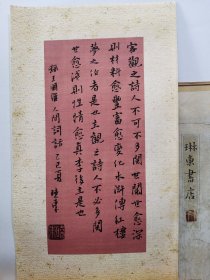 客觀之詩人不可不多閱世閱世愈深
則材料愈豐富愈變化水滸傳紅樓
夢之作者是也主觀之詩人不必多閱
世愈淺則性情愈真李后主是也
王國維人間詞話 乙巳夏
琳東書店